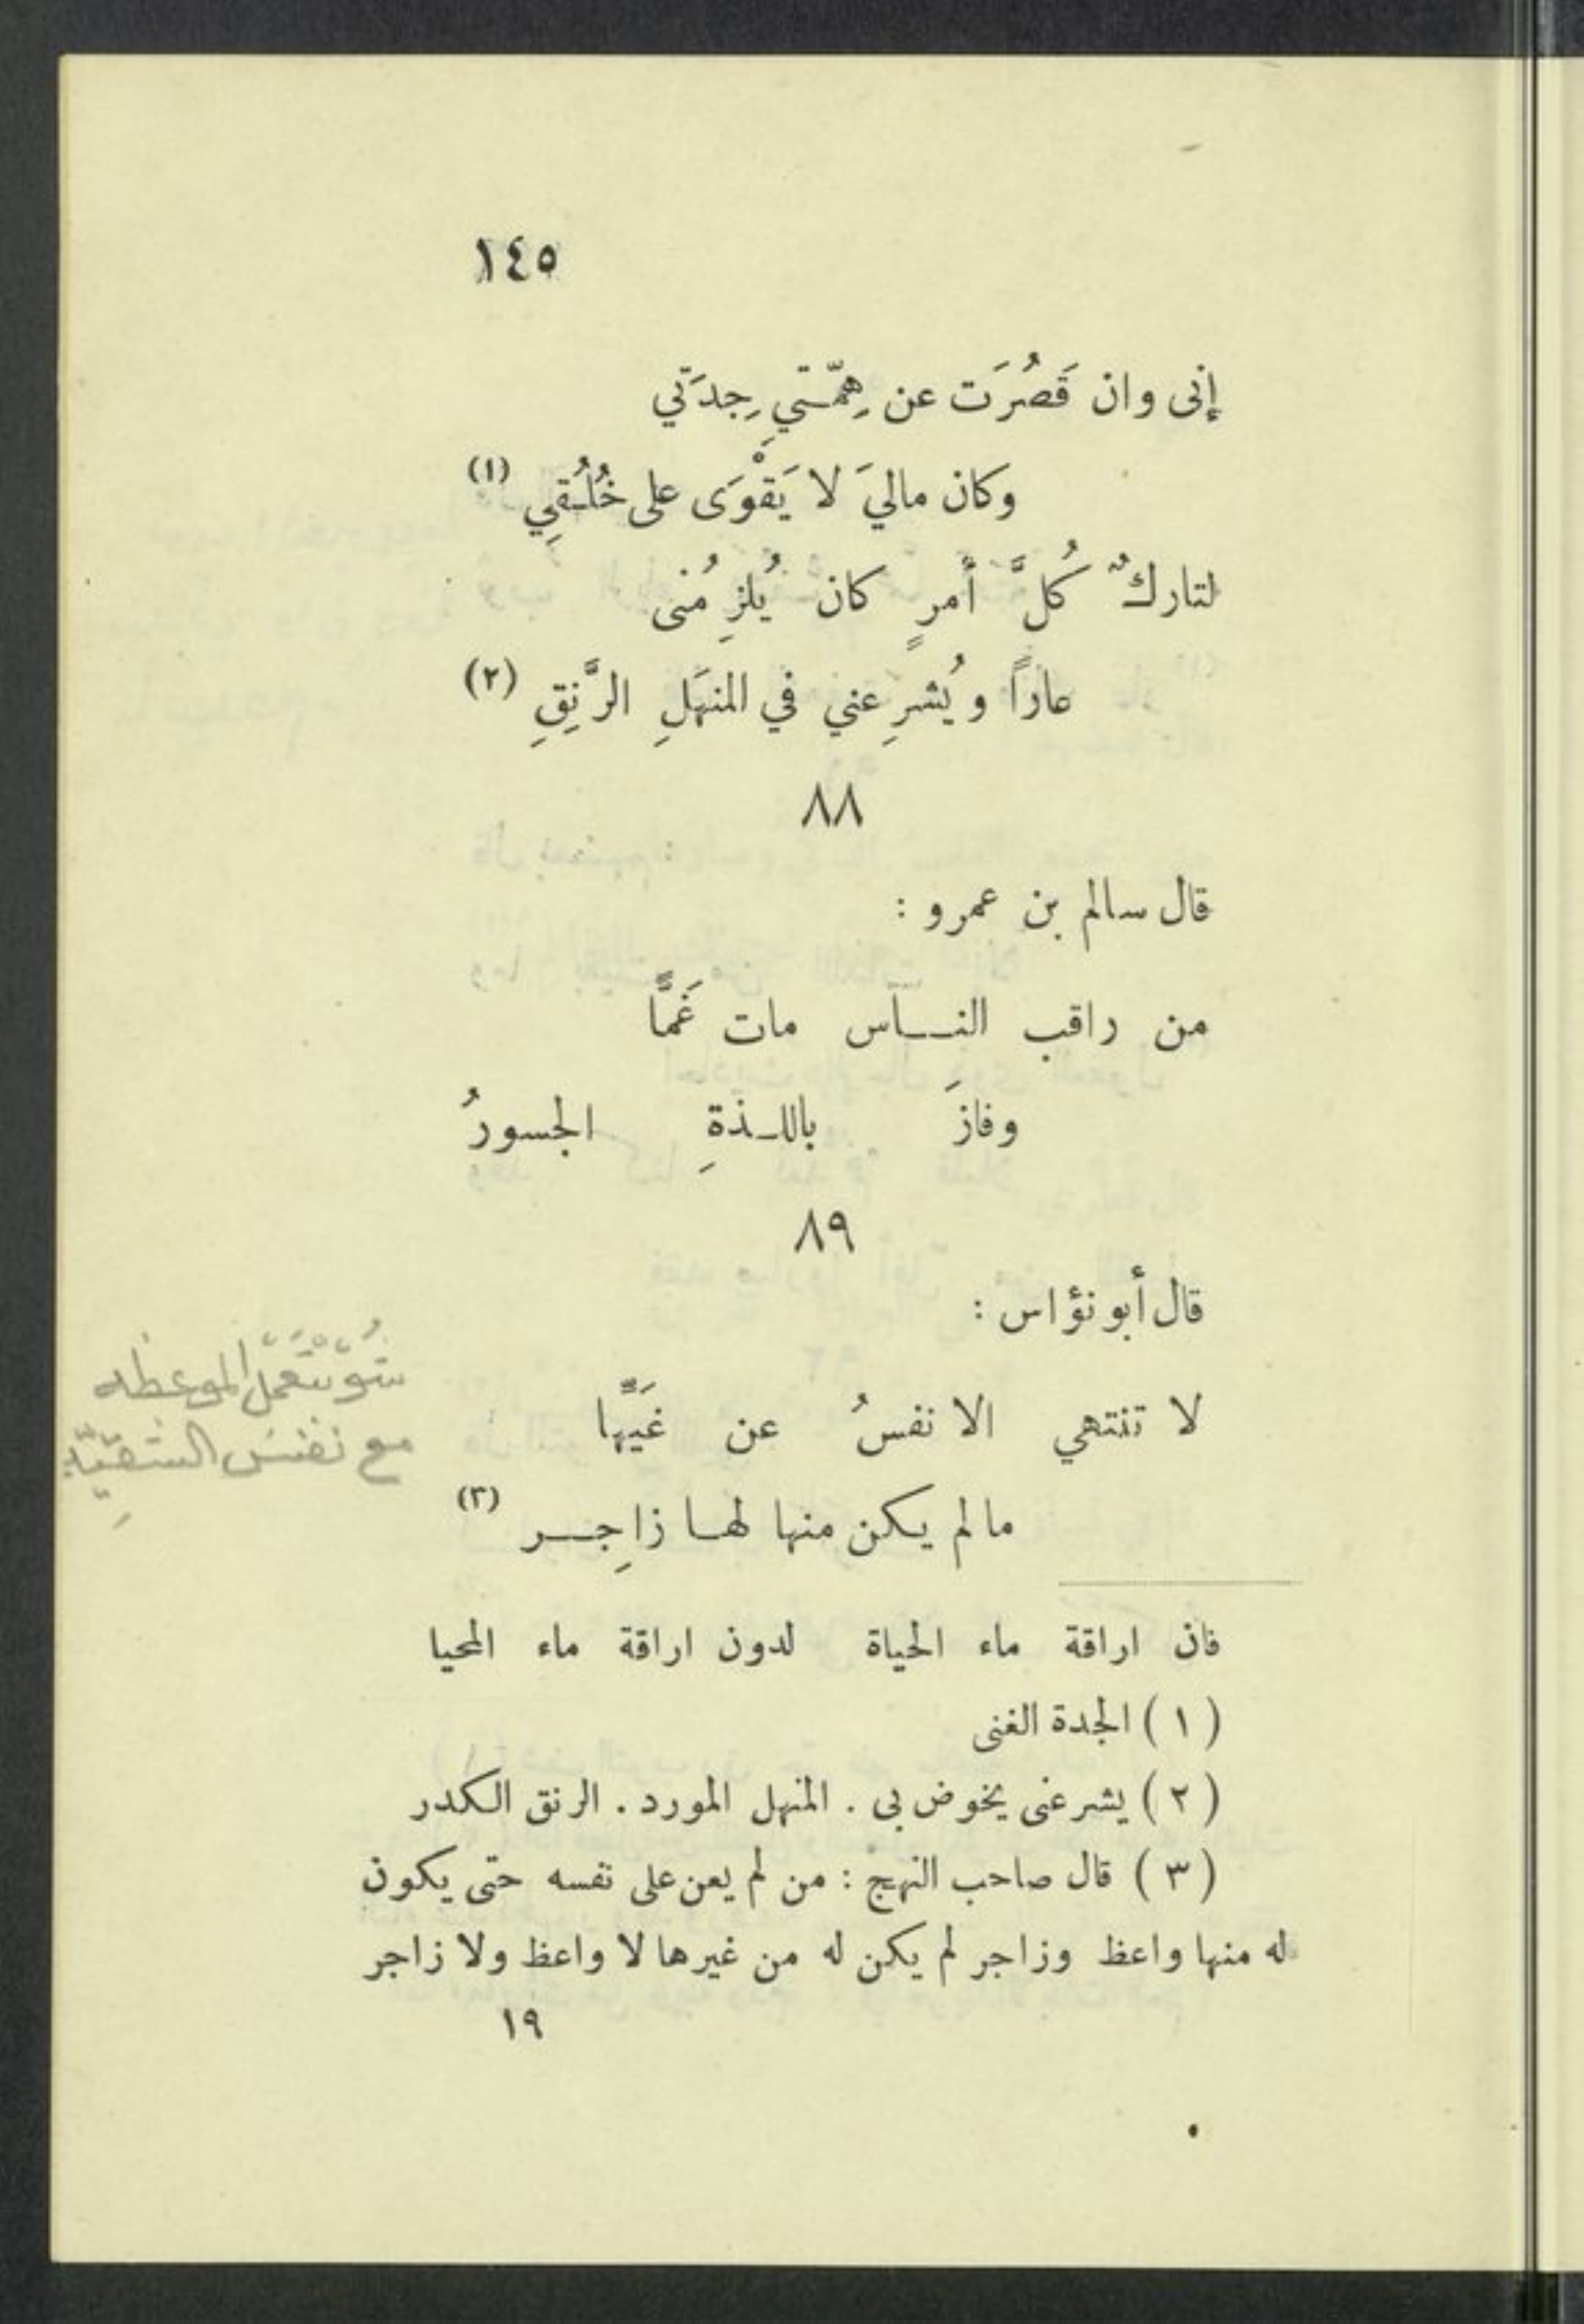 ١٤٥
إنى وان قَصُرَت عن هِمّـتي جِدَتي
وكان ماليَ لا يَقْوَى على خُلُـقِي (١)
لتاركٌ كُلَّ أمرٍ كان يُلزِمُنى
عاراً ويُشرِعني في المنهَلِ الرَّنِقِ (٢)
٨٨
قال سالم بن عمرو :
من راقب النـــاس مات غَمًّا
وفازَ باللـذةِ الجسورُ
٨٩
قال أبو نؤاس :
لا تنتهي الانفسُ عن غَيِّها
مالم يكن منها لهـا زاجِـر (٣)
شو بتعمل الموعظه
مع نفس الشقيّه
فان اراقة ماء الحياة لدون اراقة ماء المحيا
( ١ ) الجدة الغنى
( ٢ ) يشرعنى يخوض بى . المنهل المورد . الرنق الكدر
( ٣ ) قال صاحب النهج : من لم يعن على نفسه حتى يكون
له منها واعظ وزاجر لم يكن له من غيرها لا واعظ ولا زاجر
١٩